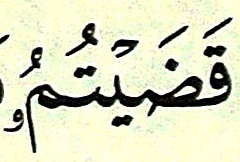 قَضَيْتُمُۥ